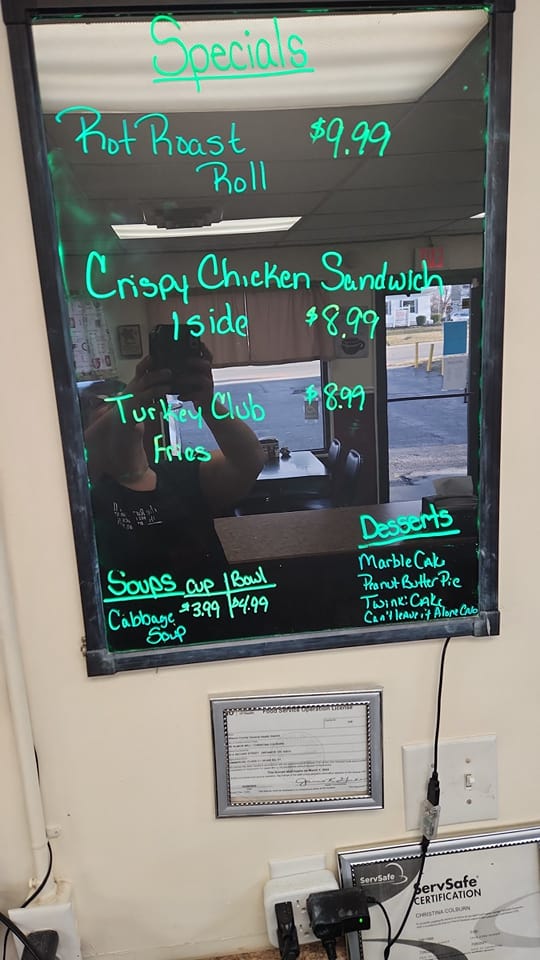 Specials
Pot Roast $9.99
Roll
Crispy Chicken Sandwich
1 side $8.99
Turkey Club $8.99
Fries
Soups Cup | Bowl
Cabbage $3.99 $4.99
Soup
Desserts
Marble Cake
Peanut Butter Pie
Twinki Cake
Can't leave it Alone Cake
Food Service Operation License
ServSafe
ServSafe®
CERTIFICATION
CHRISTINA COLBURN